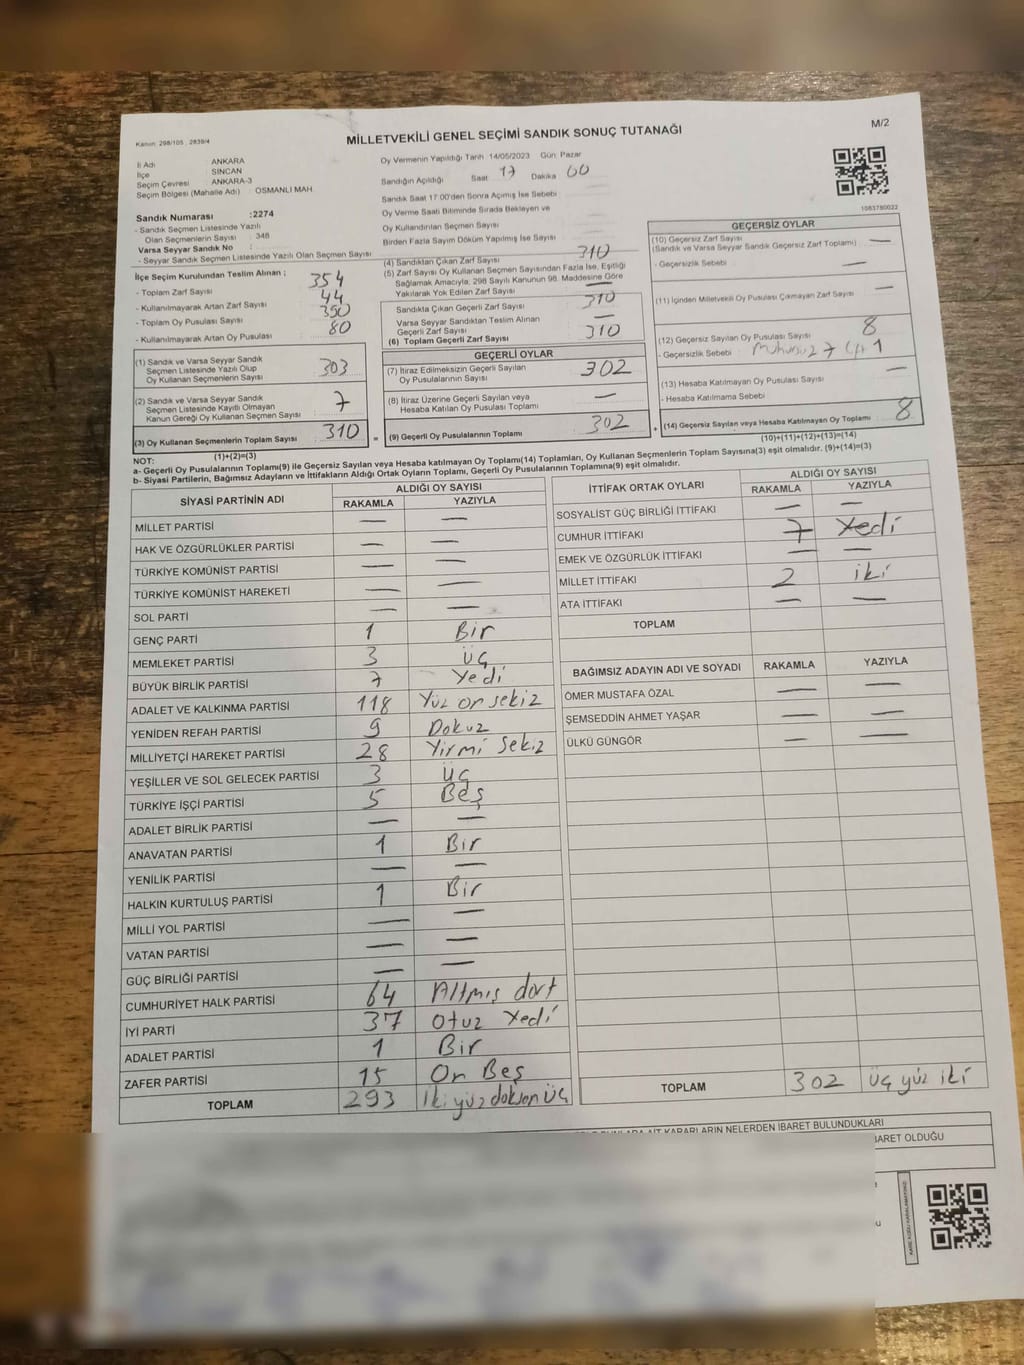 Kanun: 298/105, 2839/4
MİLLETVEKİLİ GENEL SEÇİMİ SANDIK SONUÇ TUTANAĞI
M/2
İl Adı ANKARA
İlçe SİNCAN
Seçim Çevresi ANKARA-3
Seçim Bölgesi (Mahalle Adı) : OSMANLI MAH
Sandık Numarası :2274
- Sandık Seçmen Listesinde Yazılı
Olan Seçmenlerin Sayısı : 348
Varsa Seyyar Sandık No :
- Seyyar Sandık Seçmen Listesinde Yazılı Olan Seçmen Sayısı
Oy Vermenin Yapıldığı Tarih 14/05/2023 Gün: Pazar
Sandığın Açıldığı Saat 17 Dakika 00
Sandık Saat 17.00'den Sonra Açımış İse Sebebi
Oy Verme Saati Bitiminde Sırada Bekleyen ve
Oy Kullandırılan Seçmen Sayısı
Birden Fazla Sayım Döküm Yapılmış İse Sayısı
1083780022
İlçe Seçim Kurulundan Teslim Alınan ;
- Toplam Zarf Sayısı 354
- Kullanılmayarak Artan Zarf Sayısı 44
- Toplam Oy Pusulası Sayısı 390
- Kullanılmayarak Artan Oy Pusulası 80
(1) Sandık ve Varsa Seyyar Sandık
Seçmen Listesinde Yazılı Olup
Oy Kullanan Seçmenlerin Sayısı 303
(2) Sandık ve Varsa Seyyar Sandık
Seçmen Listesinde Kayıtlı Olmayan
Kanun Gereği Oy Kullanan Seçmen Sayısı 7
(3) Oy Kullanan Seçmenlerin Toplam Sayısı 310
(1)+(2)=(3)
(4) Sandıktan Çıkan Zarf Sayısı 310
(5) Zarf Sayısı Oy Kullanan Seçmen Sayısından Fazla İse, Eşitliği
Sağlamak Amacıyla, 298 Sayılı Kanunun 98. Maddesine Göre
Yakılarak Yok Edilen Zarf Sayısı —
Sandıkta Çıkan Geçerli Zarf Sayısı 310
Varsa Seyyar Sandıktan Teslim Alınan
Geçerli Zarf Sayısı —
(6) Toplam Geçerli Zarf Sayısı 310
GEÇERLİ OYLAR
(7) İtiraz Edilmeksizin Geçerli Sayılan
Oy Pusulalarının Sayısı 302
(8) İtiraz Üzerine Geçerli Sayılan veya
Hesaba Katılan Oy Pusulası Toplamı —
= (9) Geçerli Oy Pusulalarının Toplamı 302
GEÇERSİZ OYLAR
(10) Geçersiz Zarf Sayısı
(Sandık ve Varsa Seyyar Sandık Geçersiz Zarf Toplamı) —
- Geçersizlik Sebebi —
(11) İçinden Milletvekili Oy Pusulası Çıkmayan Zarf Sayısı —
(12) Geçersiz Sayılan Oy Pusulası Sayısı 8
- Geçersizlik Sebebi 7 1
(13) Hesaba Katılmayan Oy Pusulası Sayısı —
- Hesaba Katılmama Sebebi
+ (14) Geçersiz Sayılan veya Hesaba Katılmayan Oy Toplamı 8
(10)+(11)+(12)+(13)=(14)
NOT:
a- Geçerli Oy Pusulalarının Toplamı(9) ile Geçersiz Sayılan veya Hesaba katılmayan Oy Toplamı(14) Toplamları, Oy Kullanan Seçmenlerin Toplam Sayısına(3) eşit olmalıdır. (9)+(14)=(3)
b- Siyasi Partilerin, Bağımsız Adayların ve İttifakların Aldığı Ortak Oyların Toplamı, Geçerli Oy Pusulalarının Toplamına(9) eşit olmalıdır.
SİYASİ PARTİNİN ADI ALDIĞI OY SAYISI
RAKAMLA YAZIYLA
MİLLET PARTİSİ — —
HAK VE ÖZGÜRLÜKLER PARTİSİ — —
TÜRKİYE KOMÜNİST PARTİSİ — —
TÜRKİYE KOMÜNİST HAREKETİ — —
SOL PARTİ — —
GENÇ PARTİ 1 Bir
MEMLEKET PARTİSİ 3 üç
BÜYÜK BİRLİK PARTİSİ 7 Yedi
ADALET VE KALKINMA PARTİSİ 118 Yüz on sekiz
YENİDEN REFAH PARTİSİ 9 Dokuz
MİLLİYETÇİ HAREKET PARTİSİ 28 Yirmi Sekiz
YEŞİLLER VE SOL GELECEK PARTİSİ 3 üç
TÜRKİYE İŞÇİ PARTİSİ 5 Beş
ADALET BİRLİK PARTİSİ — —
ANAVATAN PARTİSİ 1 Bir
YENİLİK PARTİSİ — —
HALKIN KURTULUŞ PARTİSİ 1 Bir
MİLLİ YOL PARTİSİ — —
VATAN PARTİSİ — —
GÜÇ BİRLİĞİ PARTİSİ — —
CUMHURİYET HALK PARTİSİ 64 Altmış dört
İYİ PARTİ 37 Otuz Yedi
ADALET PARTİSİ 1 Bir
ZAFER PARTİSİ 15 On Beş
TOPLAM 293 İki yüz doksan üç
İTTİFAK ORTAK OYLARI ALDIĞI OY SAYISI
RAKAMLA YAZIYLA
SOSYALİST GÜÇ BİRLİĞİ İTTİFAKI — —
CUMHUR İTTİFAKI 7 Yedi
EMEK VE ÖZGÜRLÜK İTTİFAKI — —
MİLLET İTTİFAKI 2 iki
ATA İTTİFAKI — —
TOPLAM
BAĞIMSIZ ADAYIN ADI VE SOYADI RAKAMLA YAZIYLA
ÖMER MUSTAFA ÖZAL — —
ŞEMSEDDİN AHMET YAŞAR — —
ÜLKÜ GÜNGÖR — —
TOPLAM 302 üç yüz iki
KARARLARIN NELERDEN İBARET BULUNDUKLARI
BARET OLDUĞU